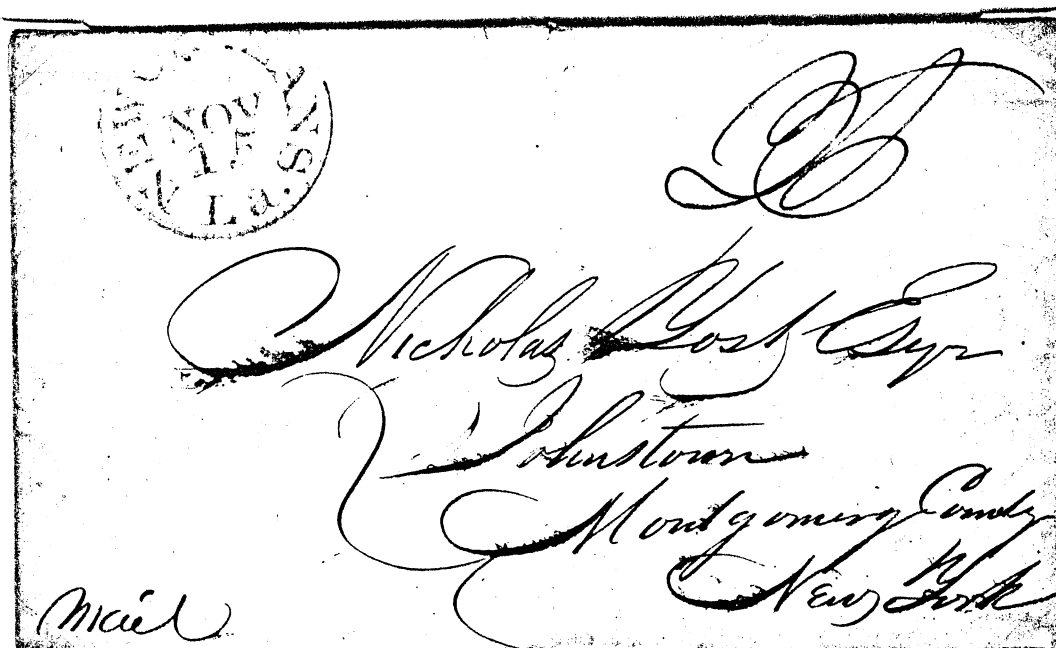 NEW ORLEANS La.
NOV
15
Nicholas Yost Esqr
Johnstown
Montgomery County
New York
Mail